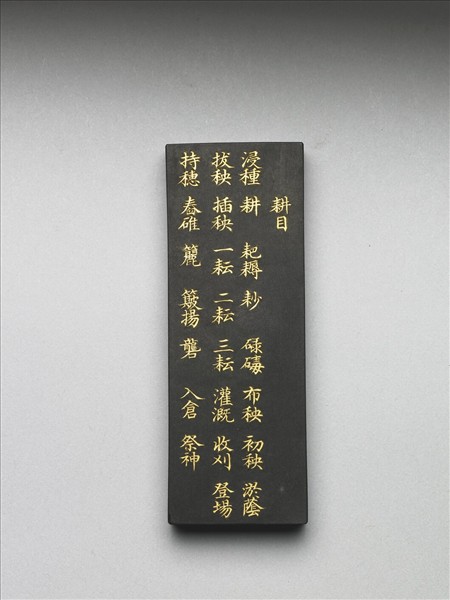 耕目
浸種 耕 耙耨 耖 碌碡 布秧 初秧 淤蔭
拔秧 插秧 一耘 二耘 三耘 灌溉 收刈 登場
持穗 舂碓 籭 簸揚 礱 入倉 祭神